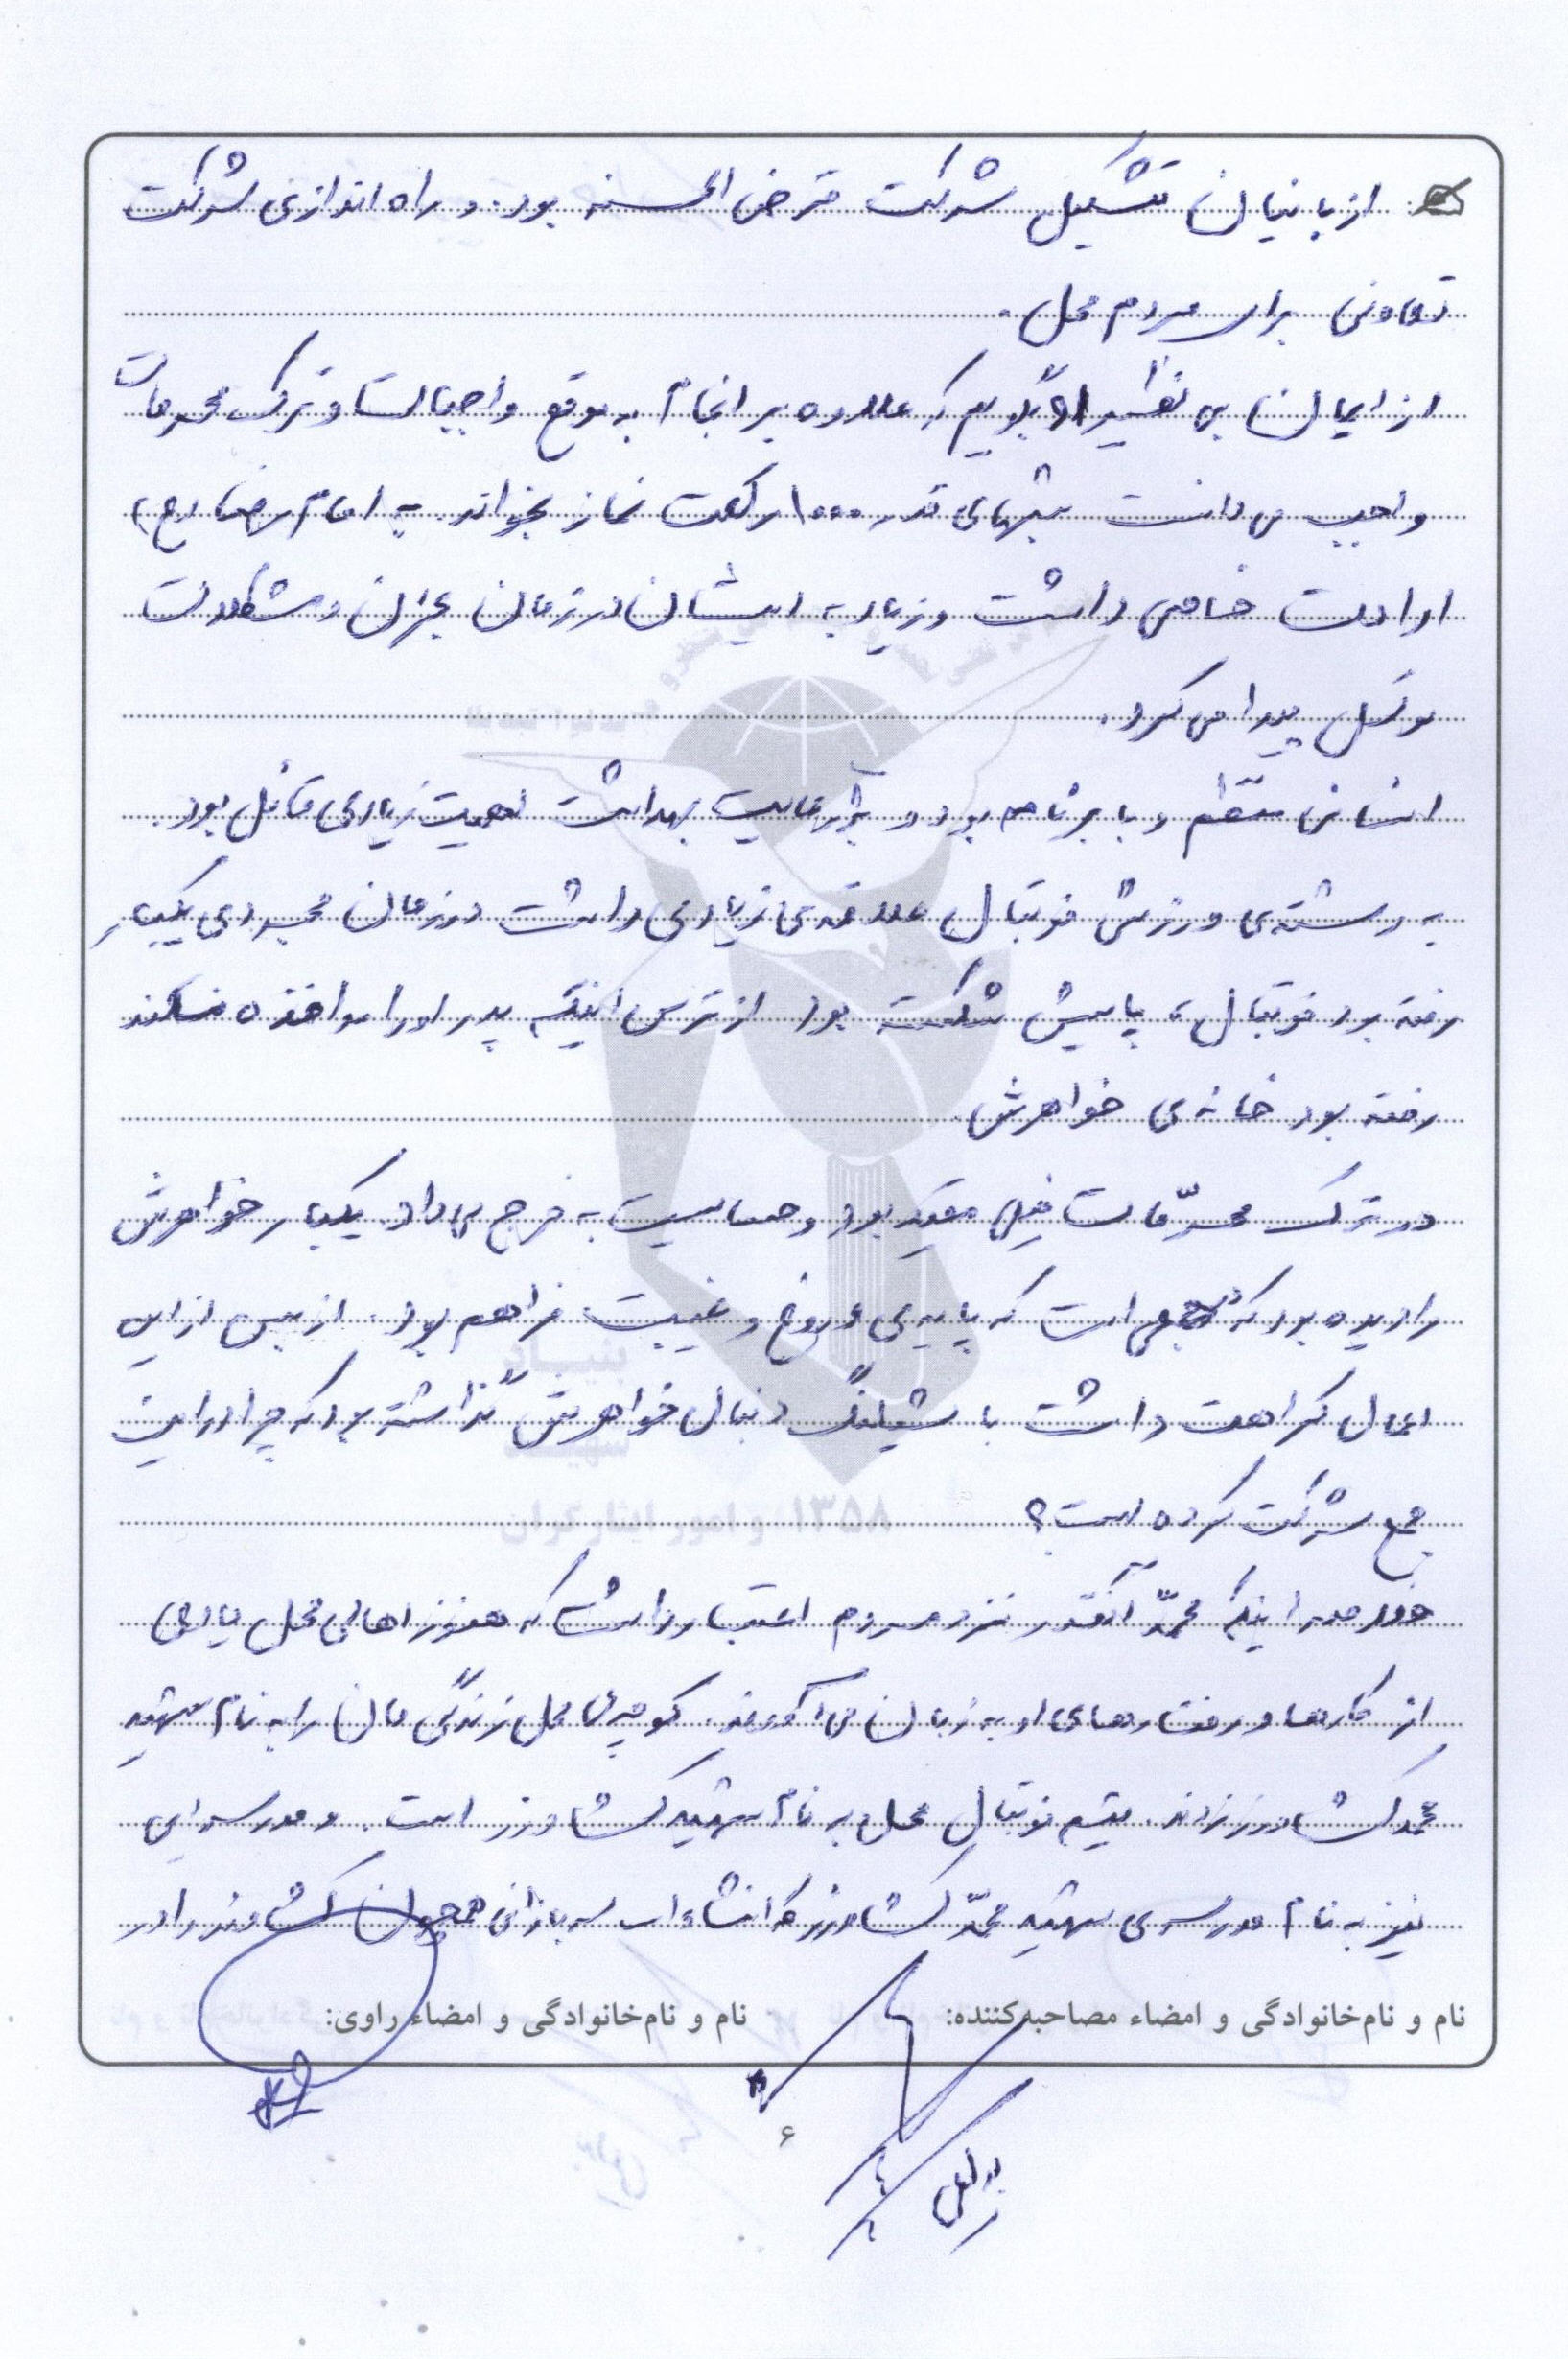 از بانیان تشکیل شرکت قرض الحسنه بود. و راه اندازی شرکت
تعاونی برای مردم محل.
از ایمان بی نظیر او بگویم که علاوه بر انجام به موقع واجبات و ترک محرمات
واجب می دانست شبهای قدر ۱۰۰۰ رکعت نماز بخواند. به امام رضا (ع)
ارادت خاصی داشت و زیاد به ایشان در زمان بحران و مشکلات
توسل پیدا می کرد.
انسانی منظم و با برنامه بود و به رعایت بهداشت اهمیت زیادی قائل بود.
به رشته ی ورزش فوتبال علاقه ی زیادی داشت در زمان مجردی یکبار
رفته بود فوتبال، پایش شکسته بود از ترس اینکه پدر اورا مواخذه نکند
رفته بود خانه ی خواهرش.
در ترک محرّمات خیلی مقید بود و حساسیت به خرج می داد. یکبار خواهرش
را دیده بود که در جمعی است که پایه ی دروغ و غیبت فراهم بود. از بس از این
اعمال کراهت داشت با شیلنگ دنبال خواهرش گذاشته بود که چرا در این
جمع شرکت کرده است؟
اینکه محمّد آنقدر نزد مردم اعتبار داشت که هنوز اهالی محل یادی
از کارها و رفتارهای او به زبان می آورند. کوچه ی محل زندگی مان را به نام شهید
محمد کشاورز زدند. تیم فوتبال محل به نام شهید کشاورز است. و مدرسه ای
نیز به نام مدرسه ی شهید محمّد کشاورز که انشاءا... سربازانی همچون کشاورز را در
نام و نام‌خانوادگی و امضاء مصاحبه‌کننده:
نام و نام‌خانوادگی و امضاء راوی:
۶
بنیاد
شهید
و امور ایثارگران
۱۳۵۸